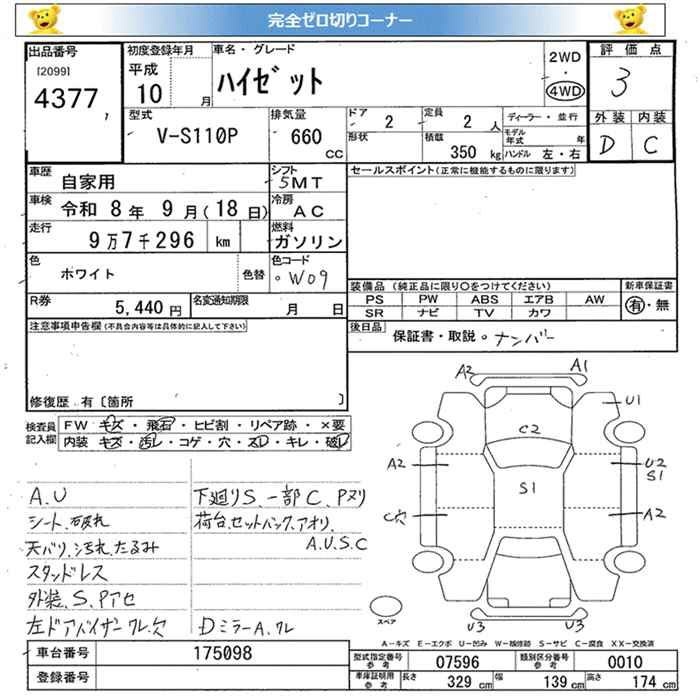 完全ゼロ切りコーナー
出品番号
[2099]
4377
初度登録年月
平成
10 月
車名・グレード
ハイゼット
2WD
・
4WD
評価点
3
型式
V-S110P
排気量
660
CC
ドア
2
形状
定員
2 人
積載
350 kg
ディーラー・並行
モデル
年式 年
ハンドル 左・右
外装 内装
D C
車歴
自家用
シフト
5MT
車検
令和 8年 9月(18日)
冷房
AC
走行
9万7千296 km
燃料
ガソリン
色
ホワイト
色替
色コード
W09
R券
5,440 円
名変通知期限
月 日
セールスポイント(正常に機能するものに限ります)
装備品(純正品に限り○をつけてください)
PS PW ABS エアB AW
SR ナビ TV カワ
新車保証書
有・無
後日品
保証書・取説。ナンバー
注意事項申告欄(不具合内容等は具体的に記入して下さい)
修復歴 有〔箇所 〕
検査員
記入欄
FW キズ・飛石・ヒビ割・リペア跡・×要
内装 キズ・汚レ・コゲ・穴・スレ・キレ・破レ
A.U
シート.破れ
天バリ.汚れ.たるみ
スタッドレス
外装.S.Pアセ
左ドアバイザーワレ.欠
下廻りS一部C.Pヌリ
荷台.セットバック.アオリ.
A.U.S.C
Dミラー A.ワレ
A2 A1
U1
C2
A2
U2
S1
S1
C穴
A2
U3 U3
スペア
A-キズ E-エクボ U-凹み W-補修跡 S-サビ C-腐食 XX-交換済
車台番号
175098
登録番号
型式指定番号
参考
07596
類別区分番号
参考
0010
車庫証明用
参考
長さ 329 cm
幅 139 cm
高さ 174 cm